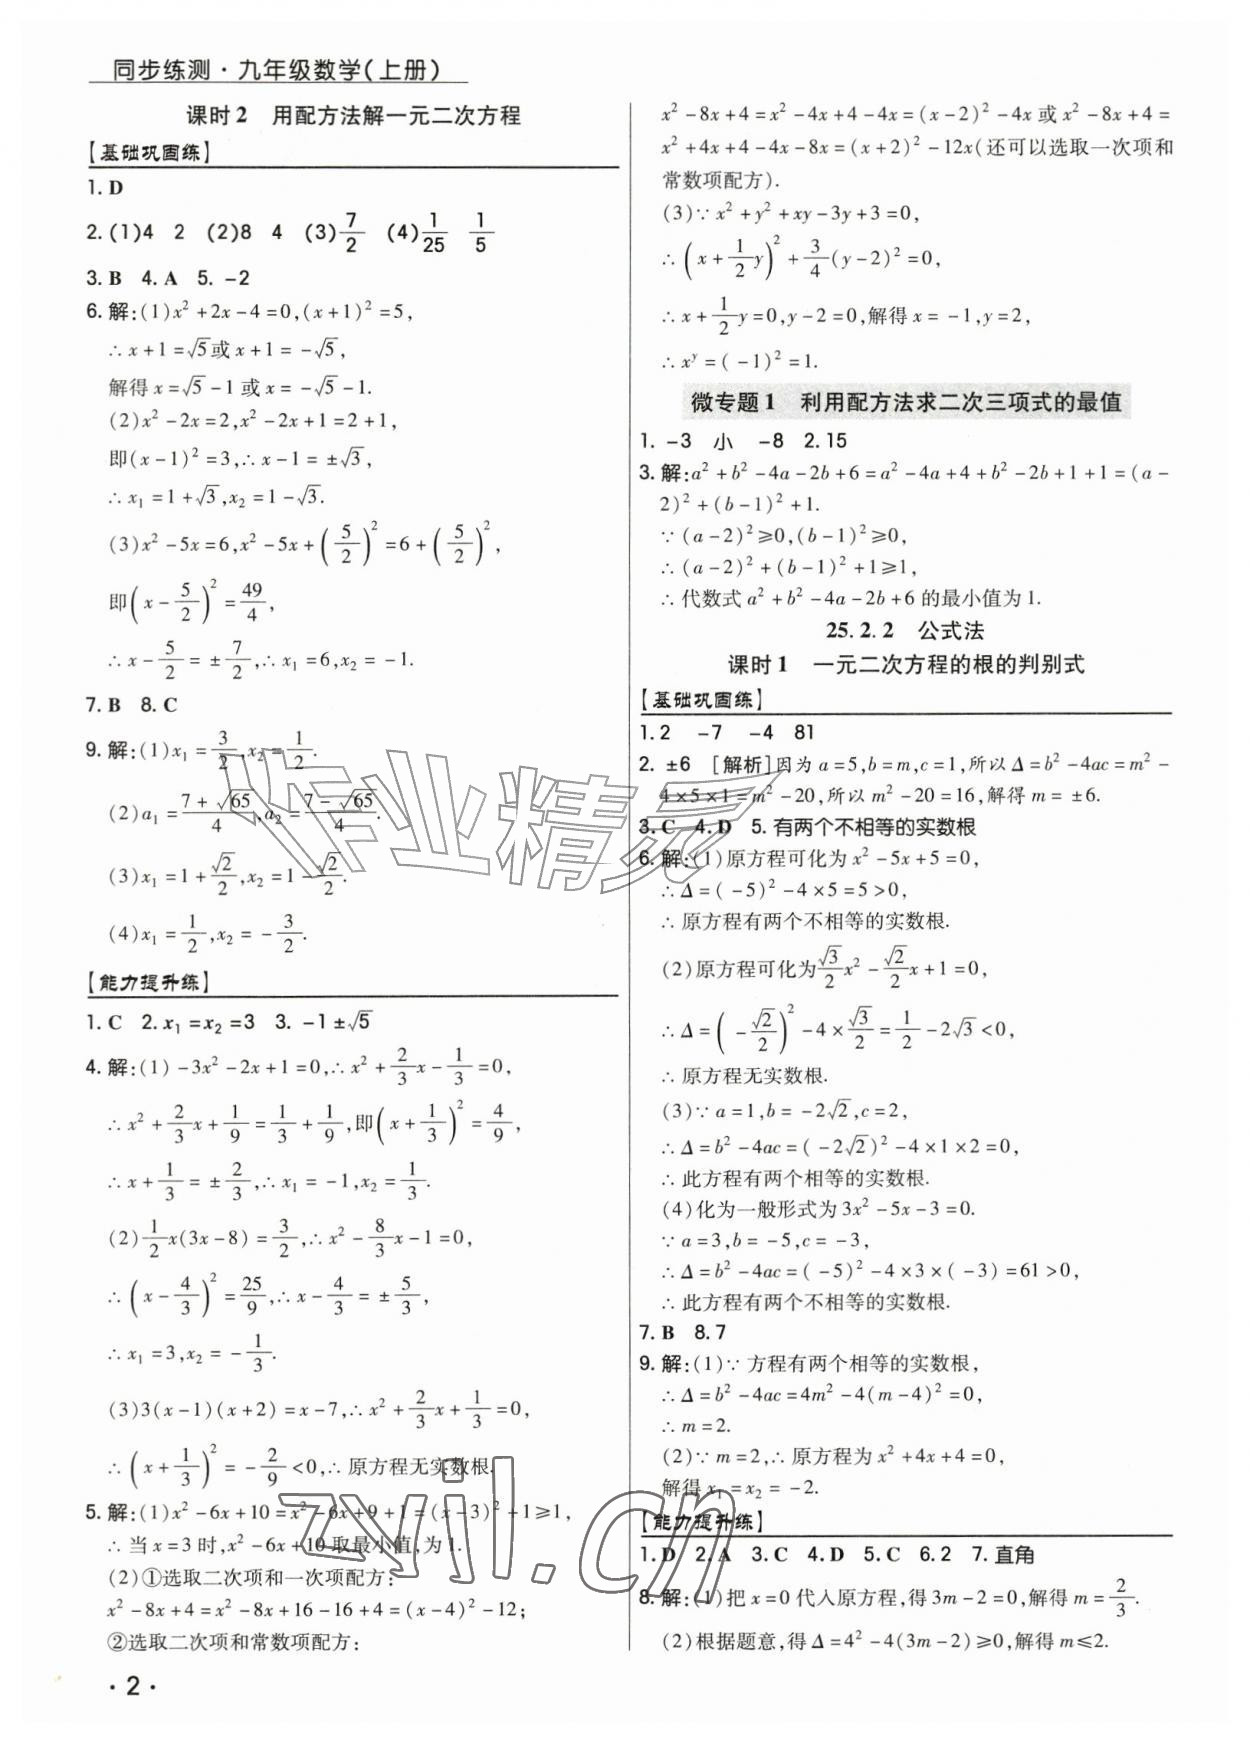 同步练测·九年级数学(上册)
课时2 用配方法解一元二次方程
【基础巩固练】
1. D
2. (1)4 2 (2)8 4 (3)7/2 (4)1/25 1/5
3. B 4. A 5. -2
6. 解:(1)x²+2x-4=0,(x+1)²=5,
∴x+1=√5或x+1=-√5,
解得x=√5-1或x=-√5-1.
(2)x²-2x=2,x²-2x+1=2+1,
即(x-1)²=3,∴x-1=±√3,
∴x₁=1+√3,x₂=1-√3.
(3)x²-5x=6,x²-5x+(5/2)²=6+(5/2)²,
即(x-5/2)²=49/4,
∴x-5/2=±7/2,∴x₁=6,x₂=-1.
7. B 8. C
9. 解:(1)x₁=3/2,x₂=1/2.
(2)a₁=(7+√65)/4,a₂=(7-√65)/4.
(3)x₁=1+√2/2,x₂=1-√2/2.
(4)x₁=1/2,x₂=-3/2.
【能力提升练】
1. C 2. x₁=x₂=3 3. -1±√5
4. 解:(1)-3x²-2x+1=0,∴x²+2/3x-1/3=0,
∴x²+2/3x+1/9=1/3+1/9,即(x+1/3)²=4/9,
∴x+1/3=±2/3,∴x₁=-1,x₂=1/3.
(2)1/2x(3x-8)=3/2,∴x²-8/3x-1=0,
∴(x-4/3)²=25/9,∴x-4/3=±5/3,
∴x₁=3,x₂=-1/3.
(3)3(x-1)(x+2)=x-7,∴x²+2/3x+1/3=0,
∴(x+1/3)²=-2/9<0,∴原方程无实数根.
5. 解:(1)x²-6x+10=x²-6x+9+1=(x-3)²+1≥1,
∴当x=3时,x²-6x+10取最小值,为1.
(2)①选取二次项和一次项配方:
x²-8x+4=x²-8x+16-16+4=(x-4)²-12;
②选取二次项和常数项配方:
x²-8x+4=x²-4x+4-4x=(x-2)²-4x或x²-8x+4=
x²+4x+4-4x-8x=(x+2)²-12x(还可以选取一次项和
常数项配方).
(3)∵x²+y²+xy-3y+3=0,
∴(x+1/2y)²+3/4(y-2)²=0,
∴x+1/2y=0,y-2=0,解得x=-1,y=2,
∴xʸ=(-1)²=1.
微专题1 利用配方法求二次三项式的最值
1. -3 小 -8 2. 15
3. 解:a²+b²-4a-2b+6=a²-4a+4+b²-2b+1+1=(a-
2)²+(b-1)²+1.
∵(a-2)²≥0,(b-1)²≥0,
∴(a-2)²+(b-1)²+1≥1,
∴代数式a²+b²-4a-2b+6的最小值为1.
25.2.2 公式法
课时1 一元二次方程的根的判别式
【基础巩固练】
1. 2 -7 -4 81
2. ±6 [解析]因为a=5,b=m,c=1,所以Δ=b²-4ac=m²-
4×5×1=m²-20,所以m²-20=16,解得m=±6.
3. C 4. D 5. 有两个不相等的实数根
6. 解:(1)原方程可化为x²-5x+5=0,
∴Δ=(-5)²-4×5=5>0,
∴原方程有两个不相等的实数根.
(2)原方程可化为√3/2x²-√2/2x+1=0,
∴Δ=(-√2/2)²-4×√3/2=1/2-2√3<0,
∴原方程无实数根.
(3)∵a=1,b=-2√2,c=2,
∴Δ=b²-4ac=(-2√2)²-4×1×2=0,
∴此方程有两个相等的实数根.
(4)化为一般形式为3x²-5x-3=0.
∵a=3,b=-5,c=-3,
∴Δ=b²-4ac=(-5)²-4×3×(-3)=61>0,
∴此方程有两个不相等的实数根.
7. B 8. 7
9. 解:(1)∵方程有两个相等的实数根,
∴Δ=b²-4ac=4m²-4(m-4)²=0,
∴m=2.
(2)∵m=2,∴原方程为x²+4x+4=0,
解得x₁=x₂=-2.
【能力提升练】
1. D 2. A 3. C 4. D 5. C 6. 2 7. 直角
8. 解:(1)把x=0代入原方程,得3m-2=0,解得m=2/3.
(2)根据题意,得Δ=4²-4(3m-2)≥0,解得m≤2.
·2·
作业精灵
zyjl.cn